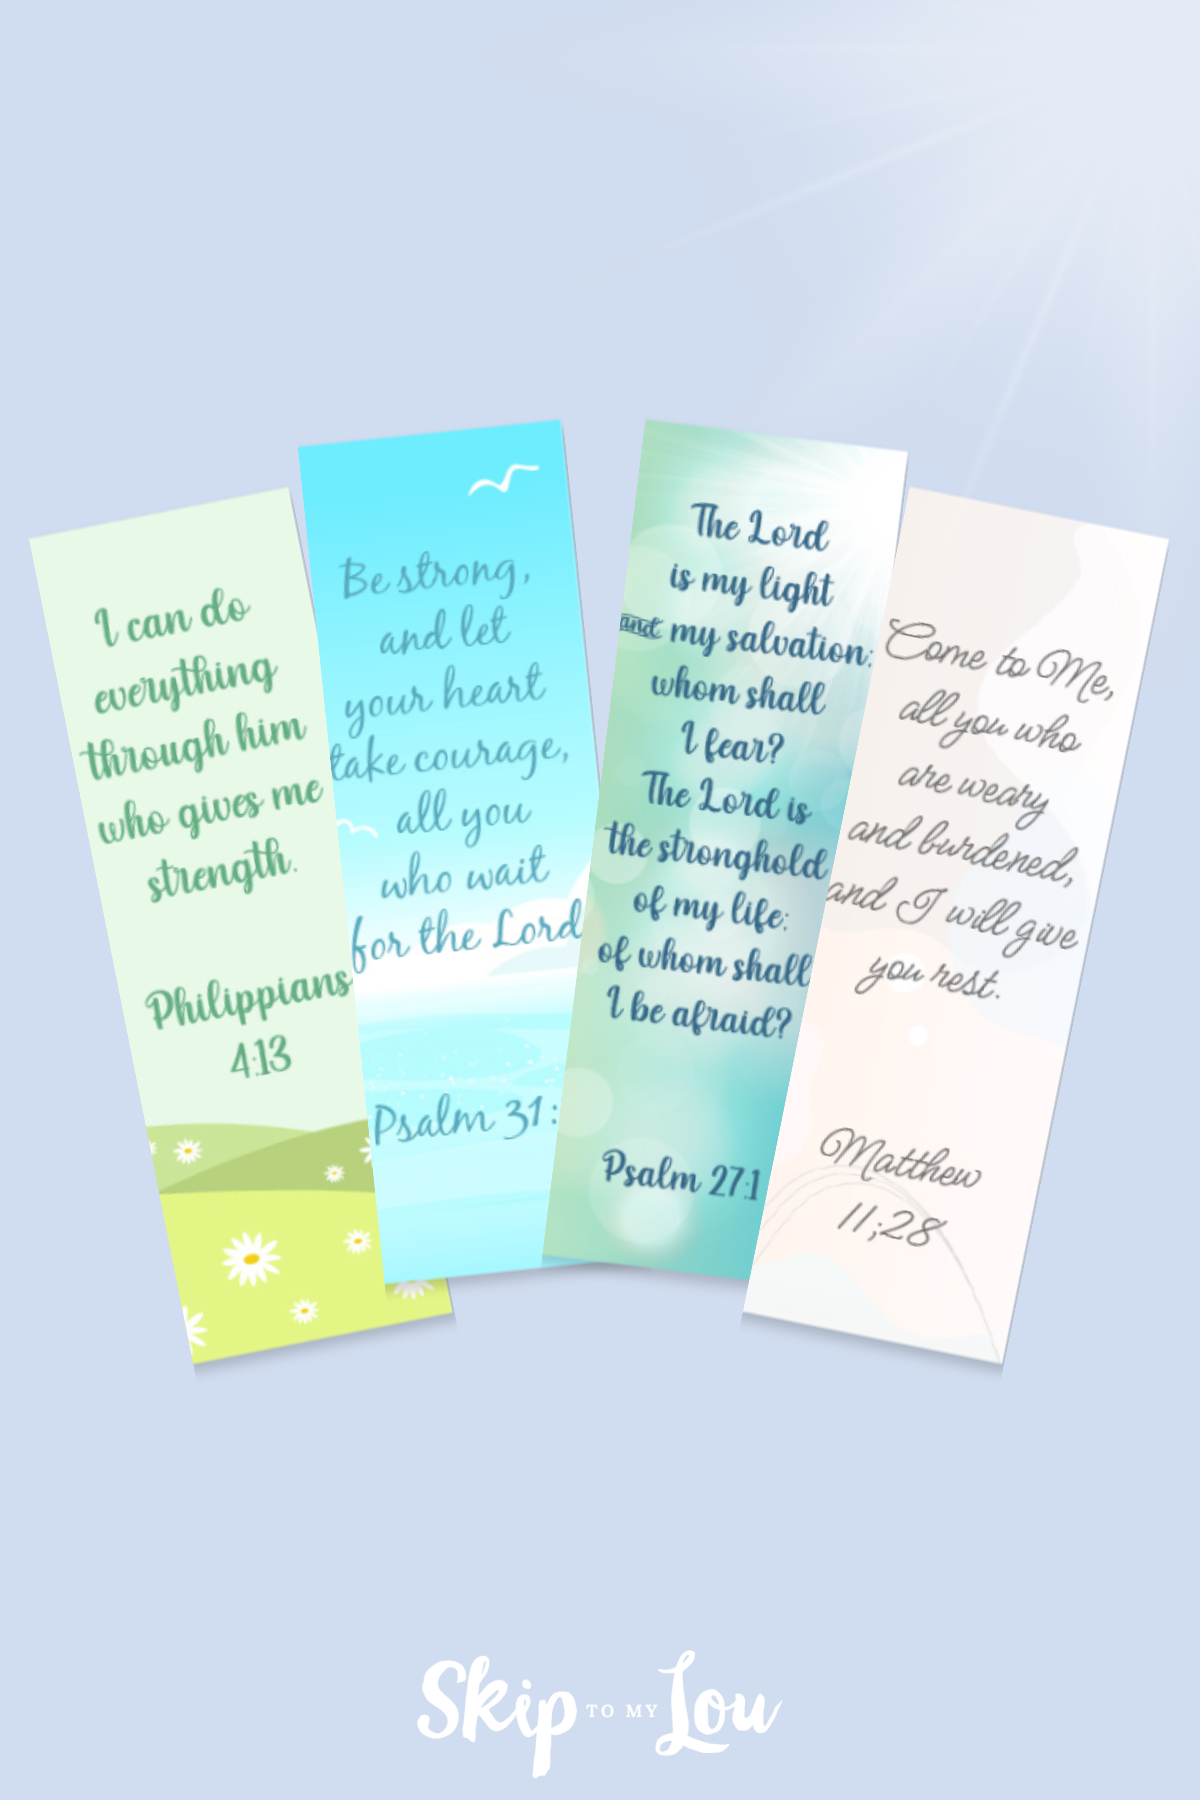 I can do
everything
through him
who gives me
strength.
Philippians
4:13
Be strong,
and let
your heart
take courage,
all you
who wait
for the Lord
Psalm 31:
The Lord
is my light
and my salvation;
whom shall
I fear?
The Lord is
the stronghold
of my life;
of whom shall
I be afraid?
Psalm 27:1
Come to Me,
all you who
are weary
and burdened,
and I will give
you rest.
Matthew
11;28
Skip TO MY Lou